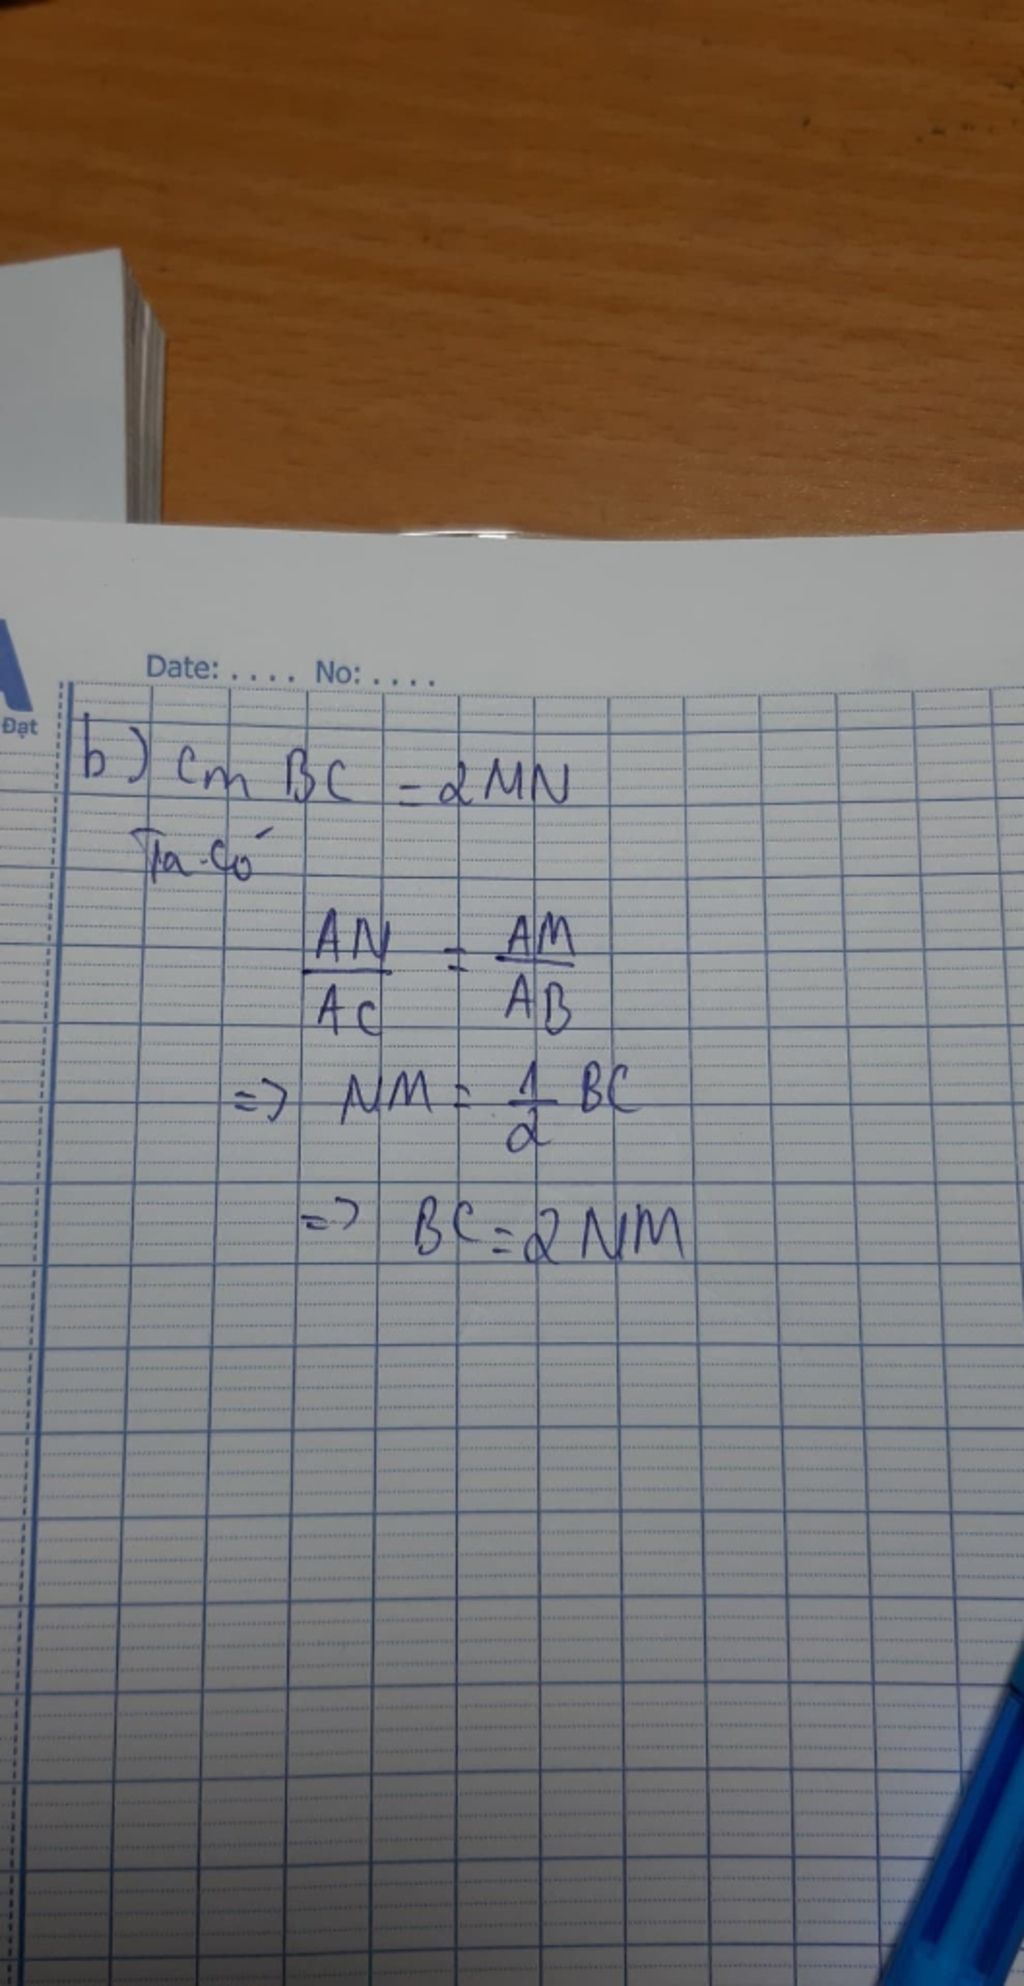 Date: .... No: ....
A
Đạt
b) cm BC = 2MN
Ta có
AN/AC = AM/AB
=> NM = 1/2 BC
=> BC = 2NM